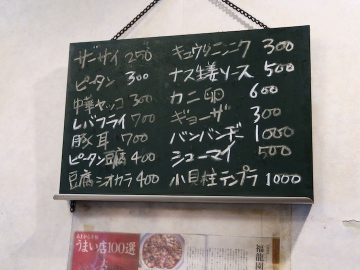 ザーサイ 250
ピータン 300
中華ヤッコ 300
レバフライ 700
豚耳 700
ピータン豆腐 400
豆腐シオカラ 400
キュウリニンニク 300
ナス生姜ソース 500
カニ 600
ギョーザ 300
バンバンヂー 1000
シューマイ 500
小貝柱テンプラ 1000
うまい店100選
福龍園